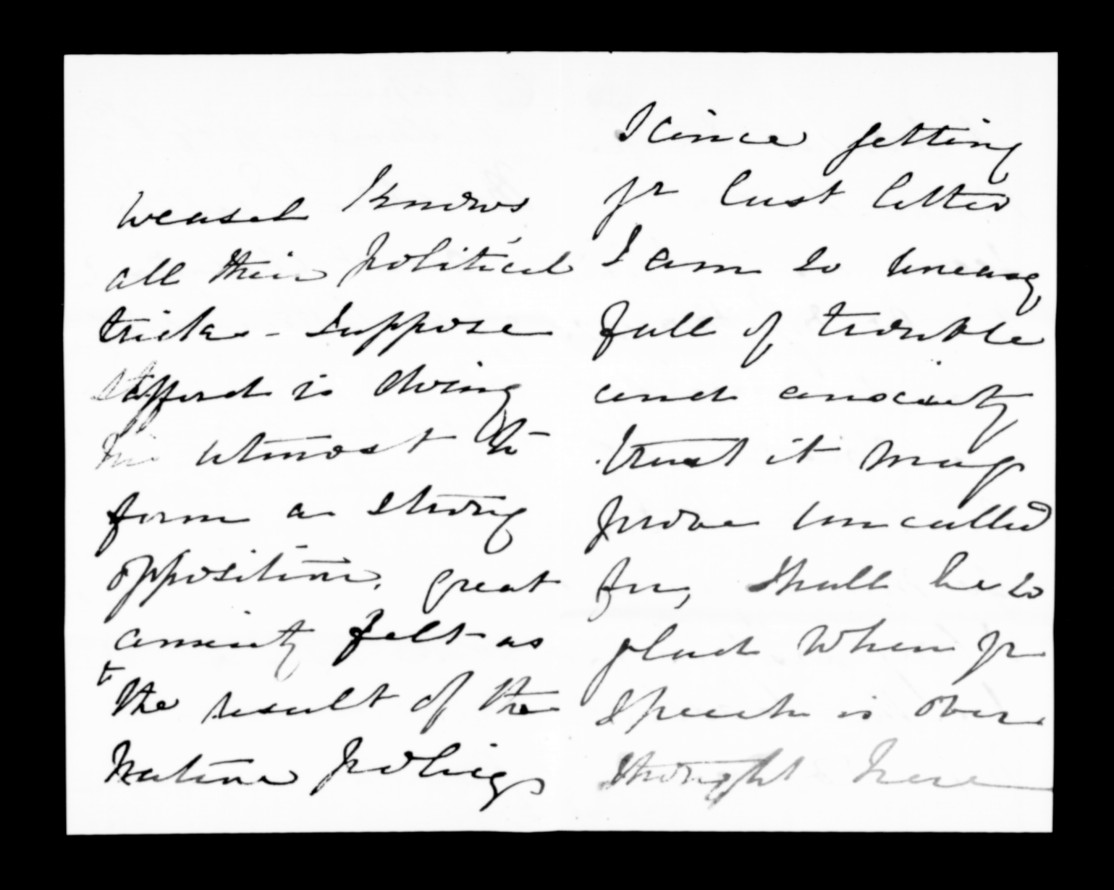 weasel knows
all their political
tricks - Suppose
Stafford is doing
his utmost to
form a strong
opposition, great
anxiety felt as
to
the result of the
Native policy
Scince getting
yr last letter
I am so uneasy
full of trouble
and anxiety
trust it may
prove uncalled
for, shall be so
glad when yr
Speech is over
thought here